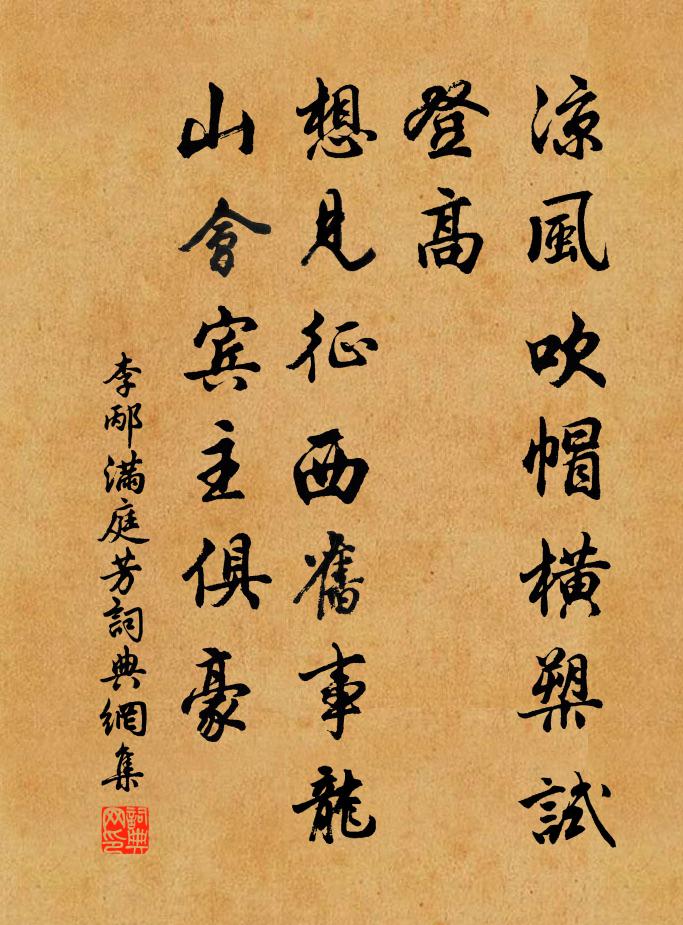 涼風吹帽橫槊試
登高
想見征西舊事龍
山會賓主俱豪
李邴滿庭芳詞典網集
詞典
网印